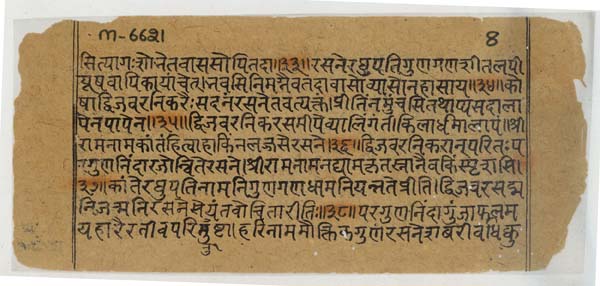 m-6621 8
सित्यागः शोनेतवाससोपितदा॥३३॥रसनेरघुपतिगुणगणशीतलपी
यूषवापिकायांचेत्।नवसिनिमग्नैवतदावासोन्यासोनहासाय॥३४॥को
षाद्विजवरनिकरैः सदनंरसनेतवत्यक्तं।प्रीतिंनमुंचसितथाप्यसदाला
पेनपापेन॥३५॥द्विजवरनिकरसमीपेप्यालिंगतं।किलार्थमालापं॥श्री
रामनामकांतंहित्वाहाकिंनलज्जसेरसने॥३६॥द्विजवरनिकरानपरितःप
रगुणनिंदारजोन्वितेरसने।श्रीरामनामनद्यामक्तस्नानैवकिंस्पृशसि॥
३७॥कांतेरघुपतिनामनिगुणगणधामनियन्नतेप्रीतिः।द्विजवरसद्म
निजन्मनिरसनेस्तेयंतवोचितारीतिः॥३८॥परगुणनिंदागुंजाफलम
यहारैरतीवपरितुष्टा।हरिनाममौक्तिकगुणंरसनेशबरीवधिक्कु